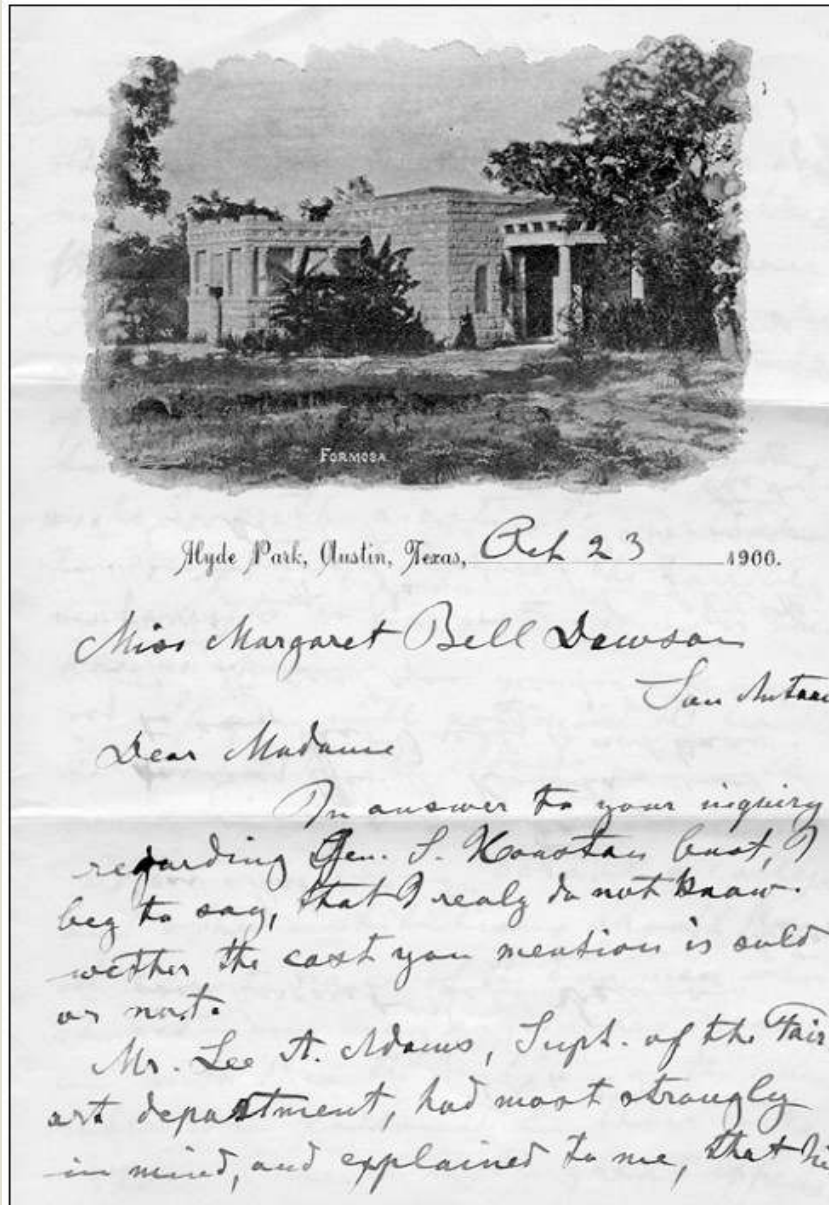 FORMOSA
Hyde Park, Austin, Texas, Oct 23 1900.
Miss Margaret Bell Dawson
San Antonio
Dear Madame
In answer to your inquiry
regarding Gen. S. Houston bust, I
beg to say, that I realy do not know.
wether the cast you mention is sold
or not.
Mr. Lee A. Adams, Supt. of the Fair
art department, had most strongly
in mind, and explained to me, that he